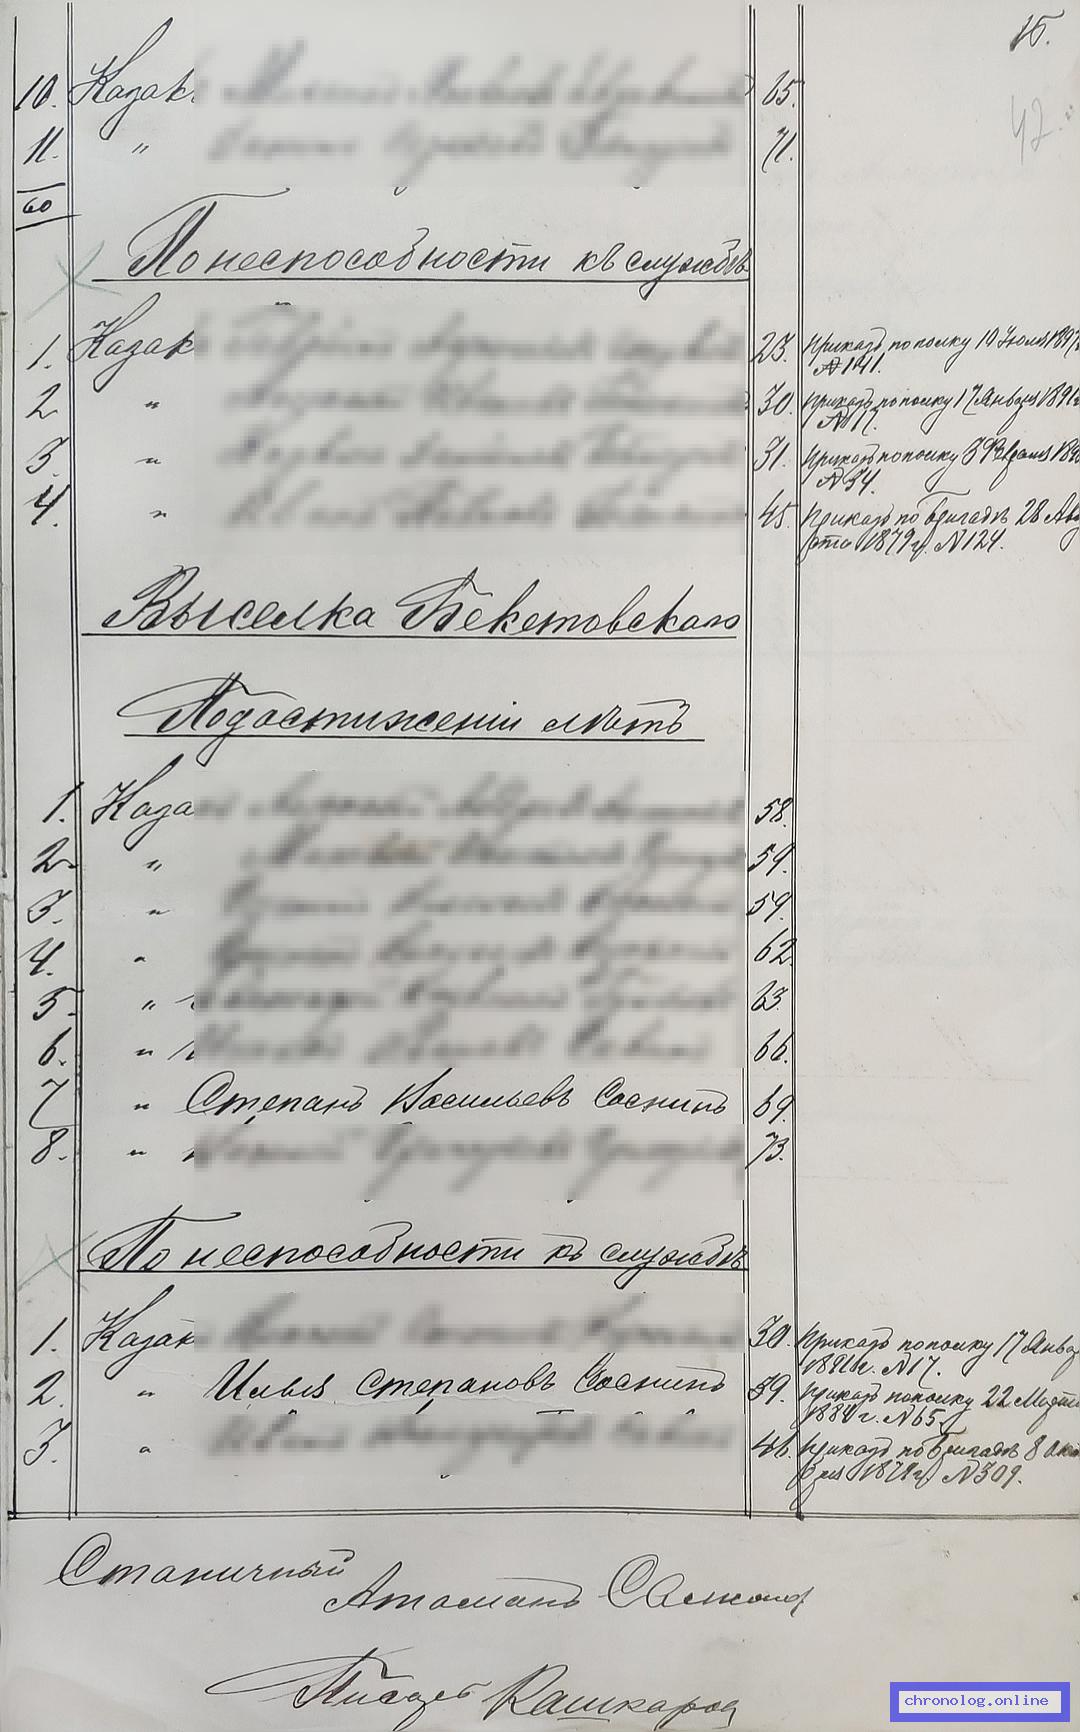 15.
42.
10. Казакъ 65.
11. " 71.
60
По неспособности къ службѣ
1. Казак 23. Приказъ по полку 10 Іюля 189
№ 141.
2 " 30. Приказъ по полку 17 Января 1891г
№ 17.
3. " 31. Приказъ по полку 3 Февраля 189
№ 34.
4. " 45. Приказъ по бригадѣ 28 Авгу
ста 1879г. № 124.
Выселка Бекетовскаго
По достиженіи лѣтъ
1. Каза 58.
2. " 59.
3. " 59.
4. " 62.
5. " 63.
6. " 66.
7 " Степанъ Васильевъ Соснинъ 69.
8. " 73.
По неспособности къ службѣ
1. Казак 30. Приказъ по полку 17 Янва
1891г. № 17.
2. " Илья Степановъ Соснинъ 39. Приказъ по полку 22 Марта
1884г. № 65.
3. " 46. Приказъ по бригадѣ 8 Октя
бря 1879г. № 309.
Станичный
Атаманъ
Писарь Кашкаров
chronolog.online